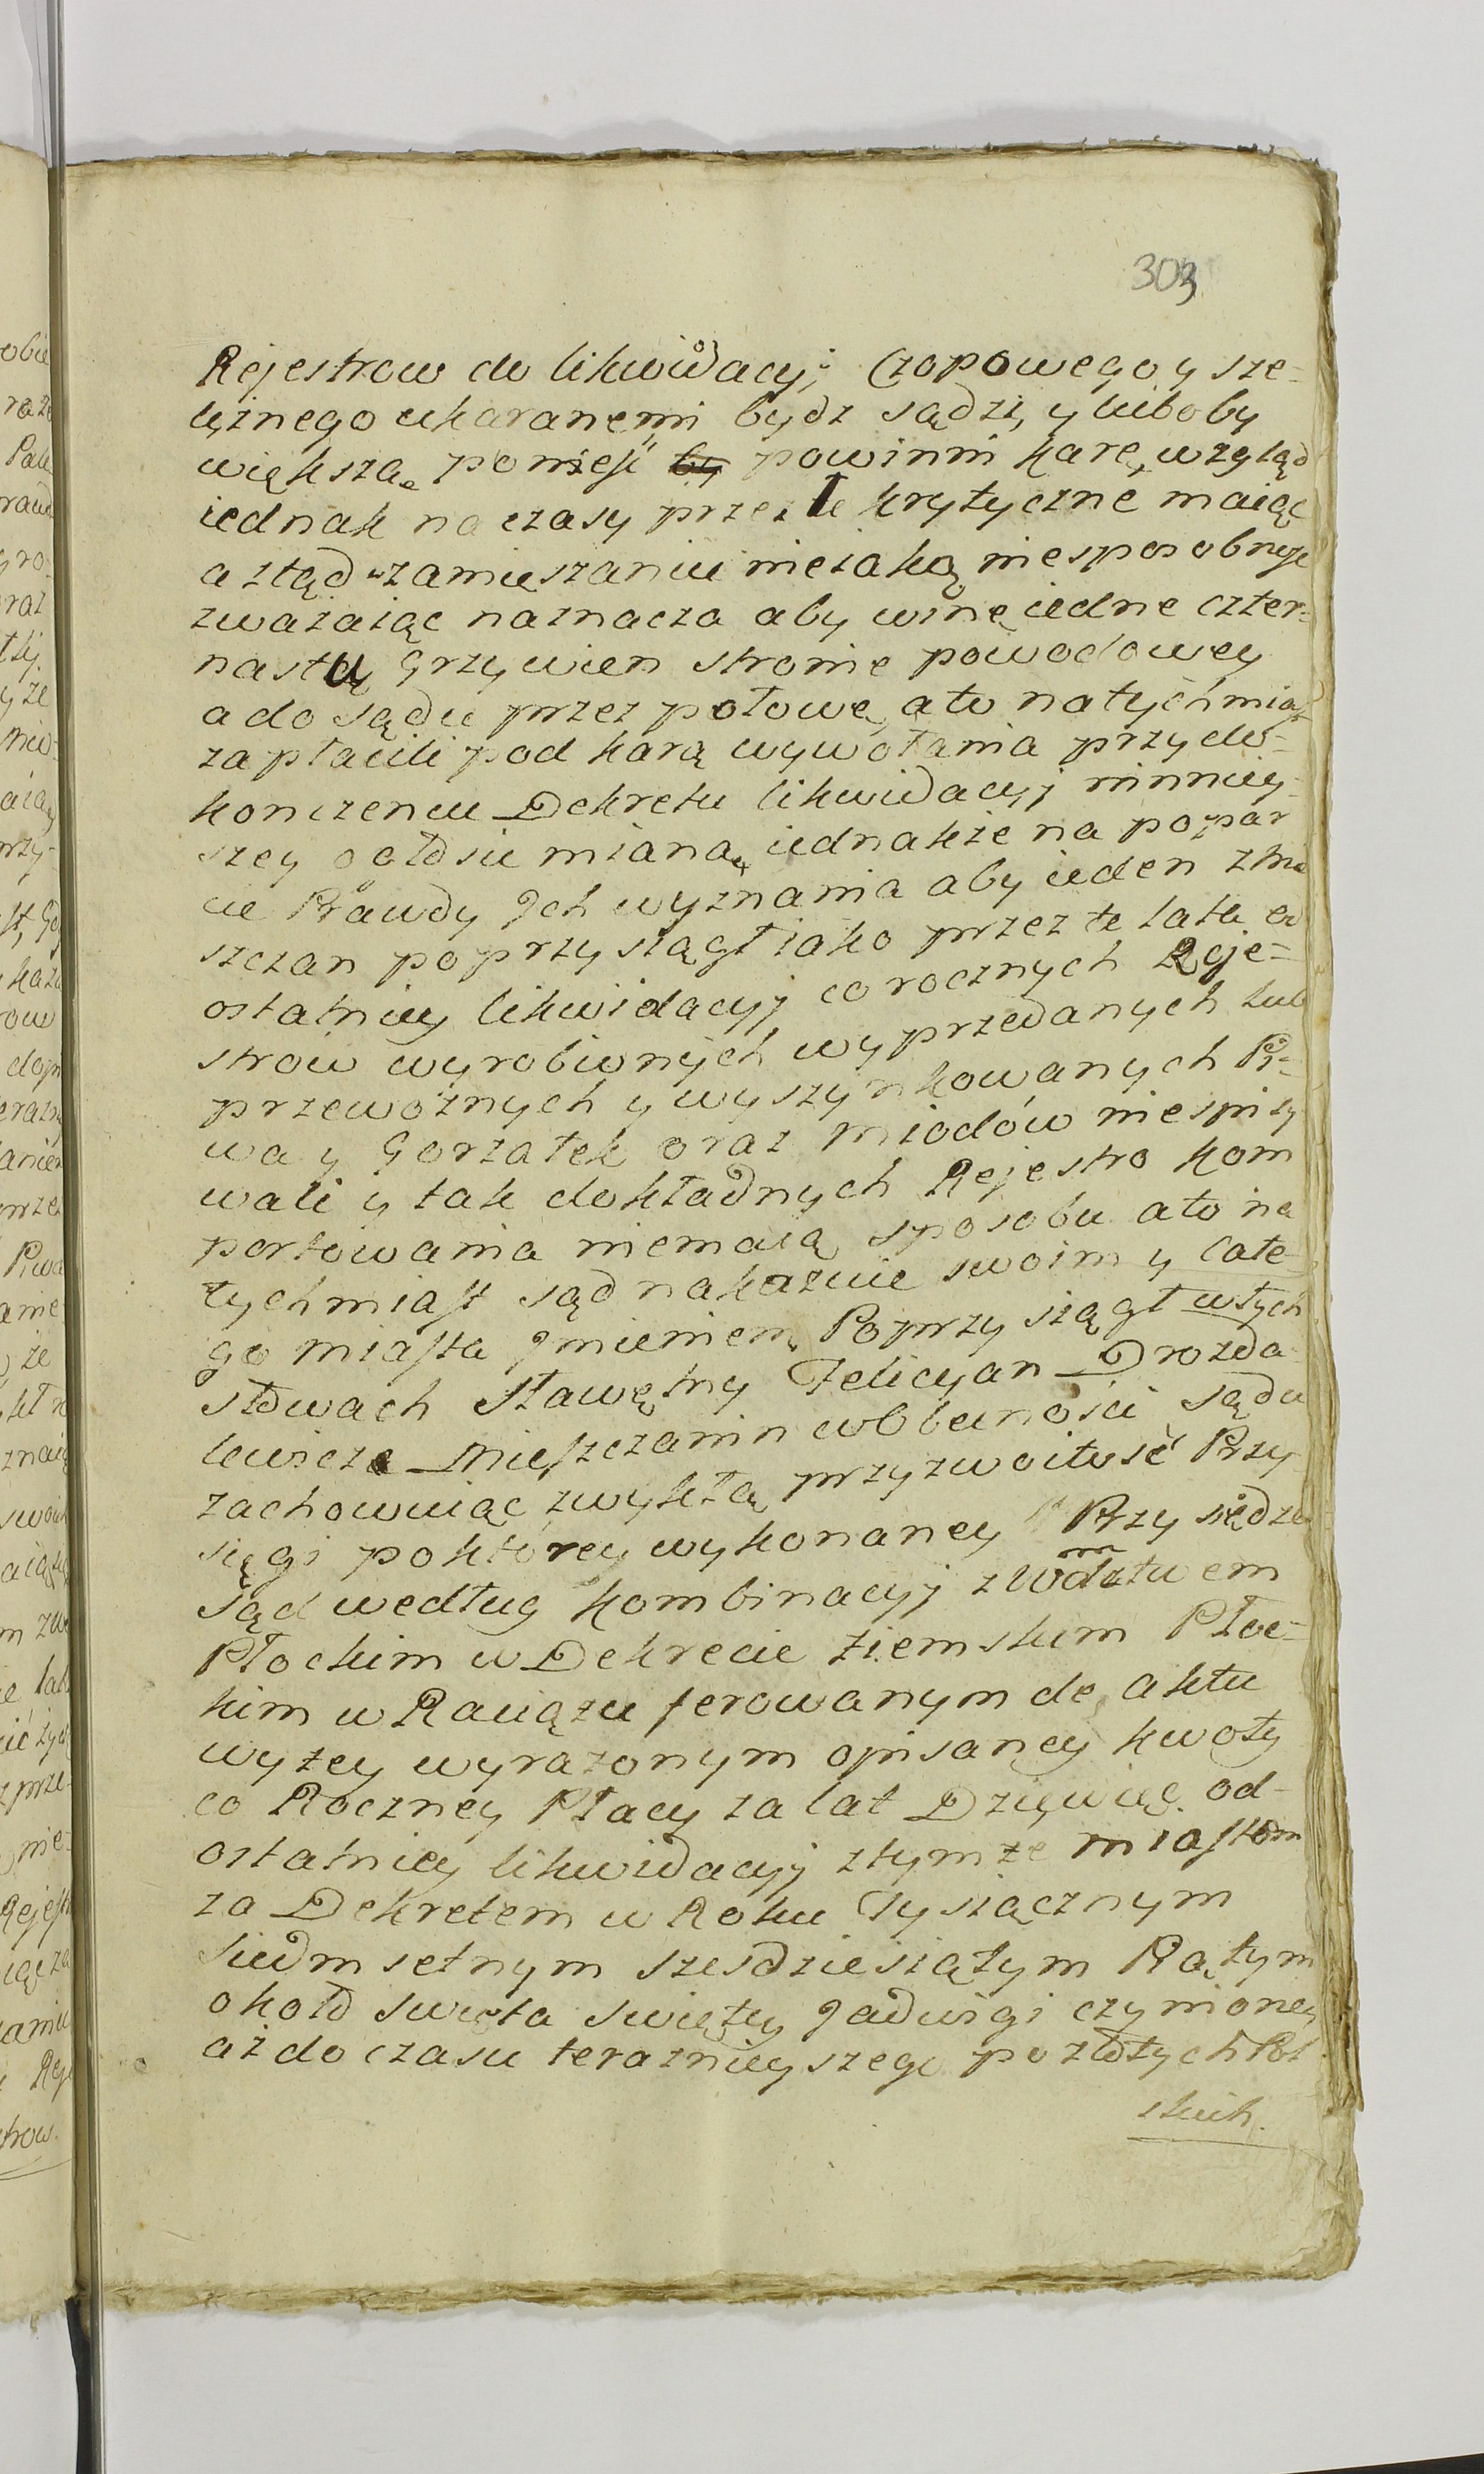 303
Rejestrow do likwidacyi Czopowego y sze-
lężnego ukaranemi bydz sądzi, y luboby
większą ponieść by powinni karę, wzgląd
iednak na czasy przeszłe krytyczne maiąc
a ztąd w zamieszaniu nieiaką niesposobność
zważaiąc naznacza aby winę iedne czter-
nastu Grzywien stronie powodowey
a do sądu przez połowę, a to natychmiast
zapłacili pod karą wywołania przy do-
konczeniu Dekretu likwidacyi ninniey-
szey ogłosić mianą, iednakże na popar
cie Prawdy Ich wyznania aby ieden z Mie
szczan poprzysiągł iako przez te lata od
ostatniey likwidacyi corocznych Reje-
strow wyrobionych wyprzedanych lub
przewoźnych y wyszynkowanych Pi-
wa y Gorzałek oraz Miodów niespisy
wali y tak dokładnych Rejestro kom
portowania niemaią sposobu a to na
tychmiast sąd nakazuie swoim y całe-
go miasta Imieniem, Poprzysiągł w tych
słowach Sławętny Felicyan Drozda
lewicz Mieszczanin w Obecności Sądu
zachowuiąc zwykłą przyzwoitość Przy
sięgi po którey wykonaney Przysiędze
Sąd według kombinacyi z Wdztwem
Płockim w Dekrecie Ziemskim Płoc-
kim w Raciążu ferowanym de aktu
wyżey wyrażonym opisaney kwoty
co Roczney Płacy za lat Dziewięć od-
ostatniey likwidacyi z tymże miastem
za Dekretem w Roku Tysiącznym
Siedmsetnym szesdziesiątym Piątym
około swięta swiętey Jadwigi czynioney
aż do czasu teraznieyszego po złotych Pol
skich.